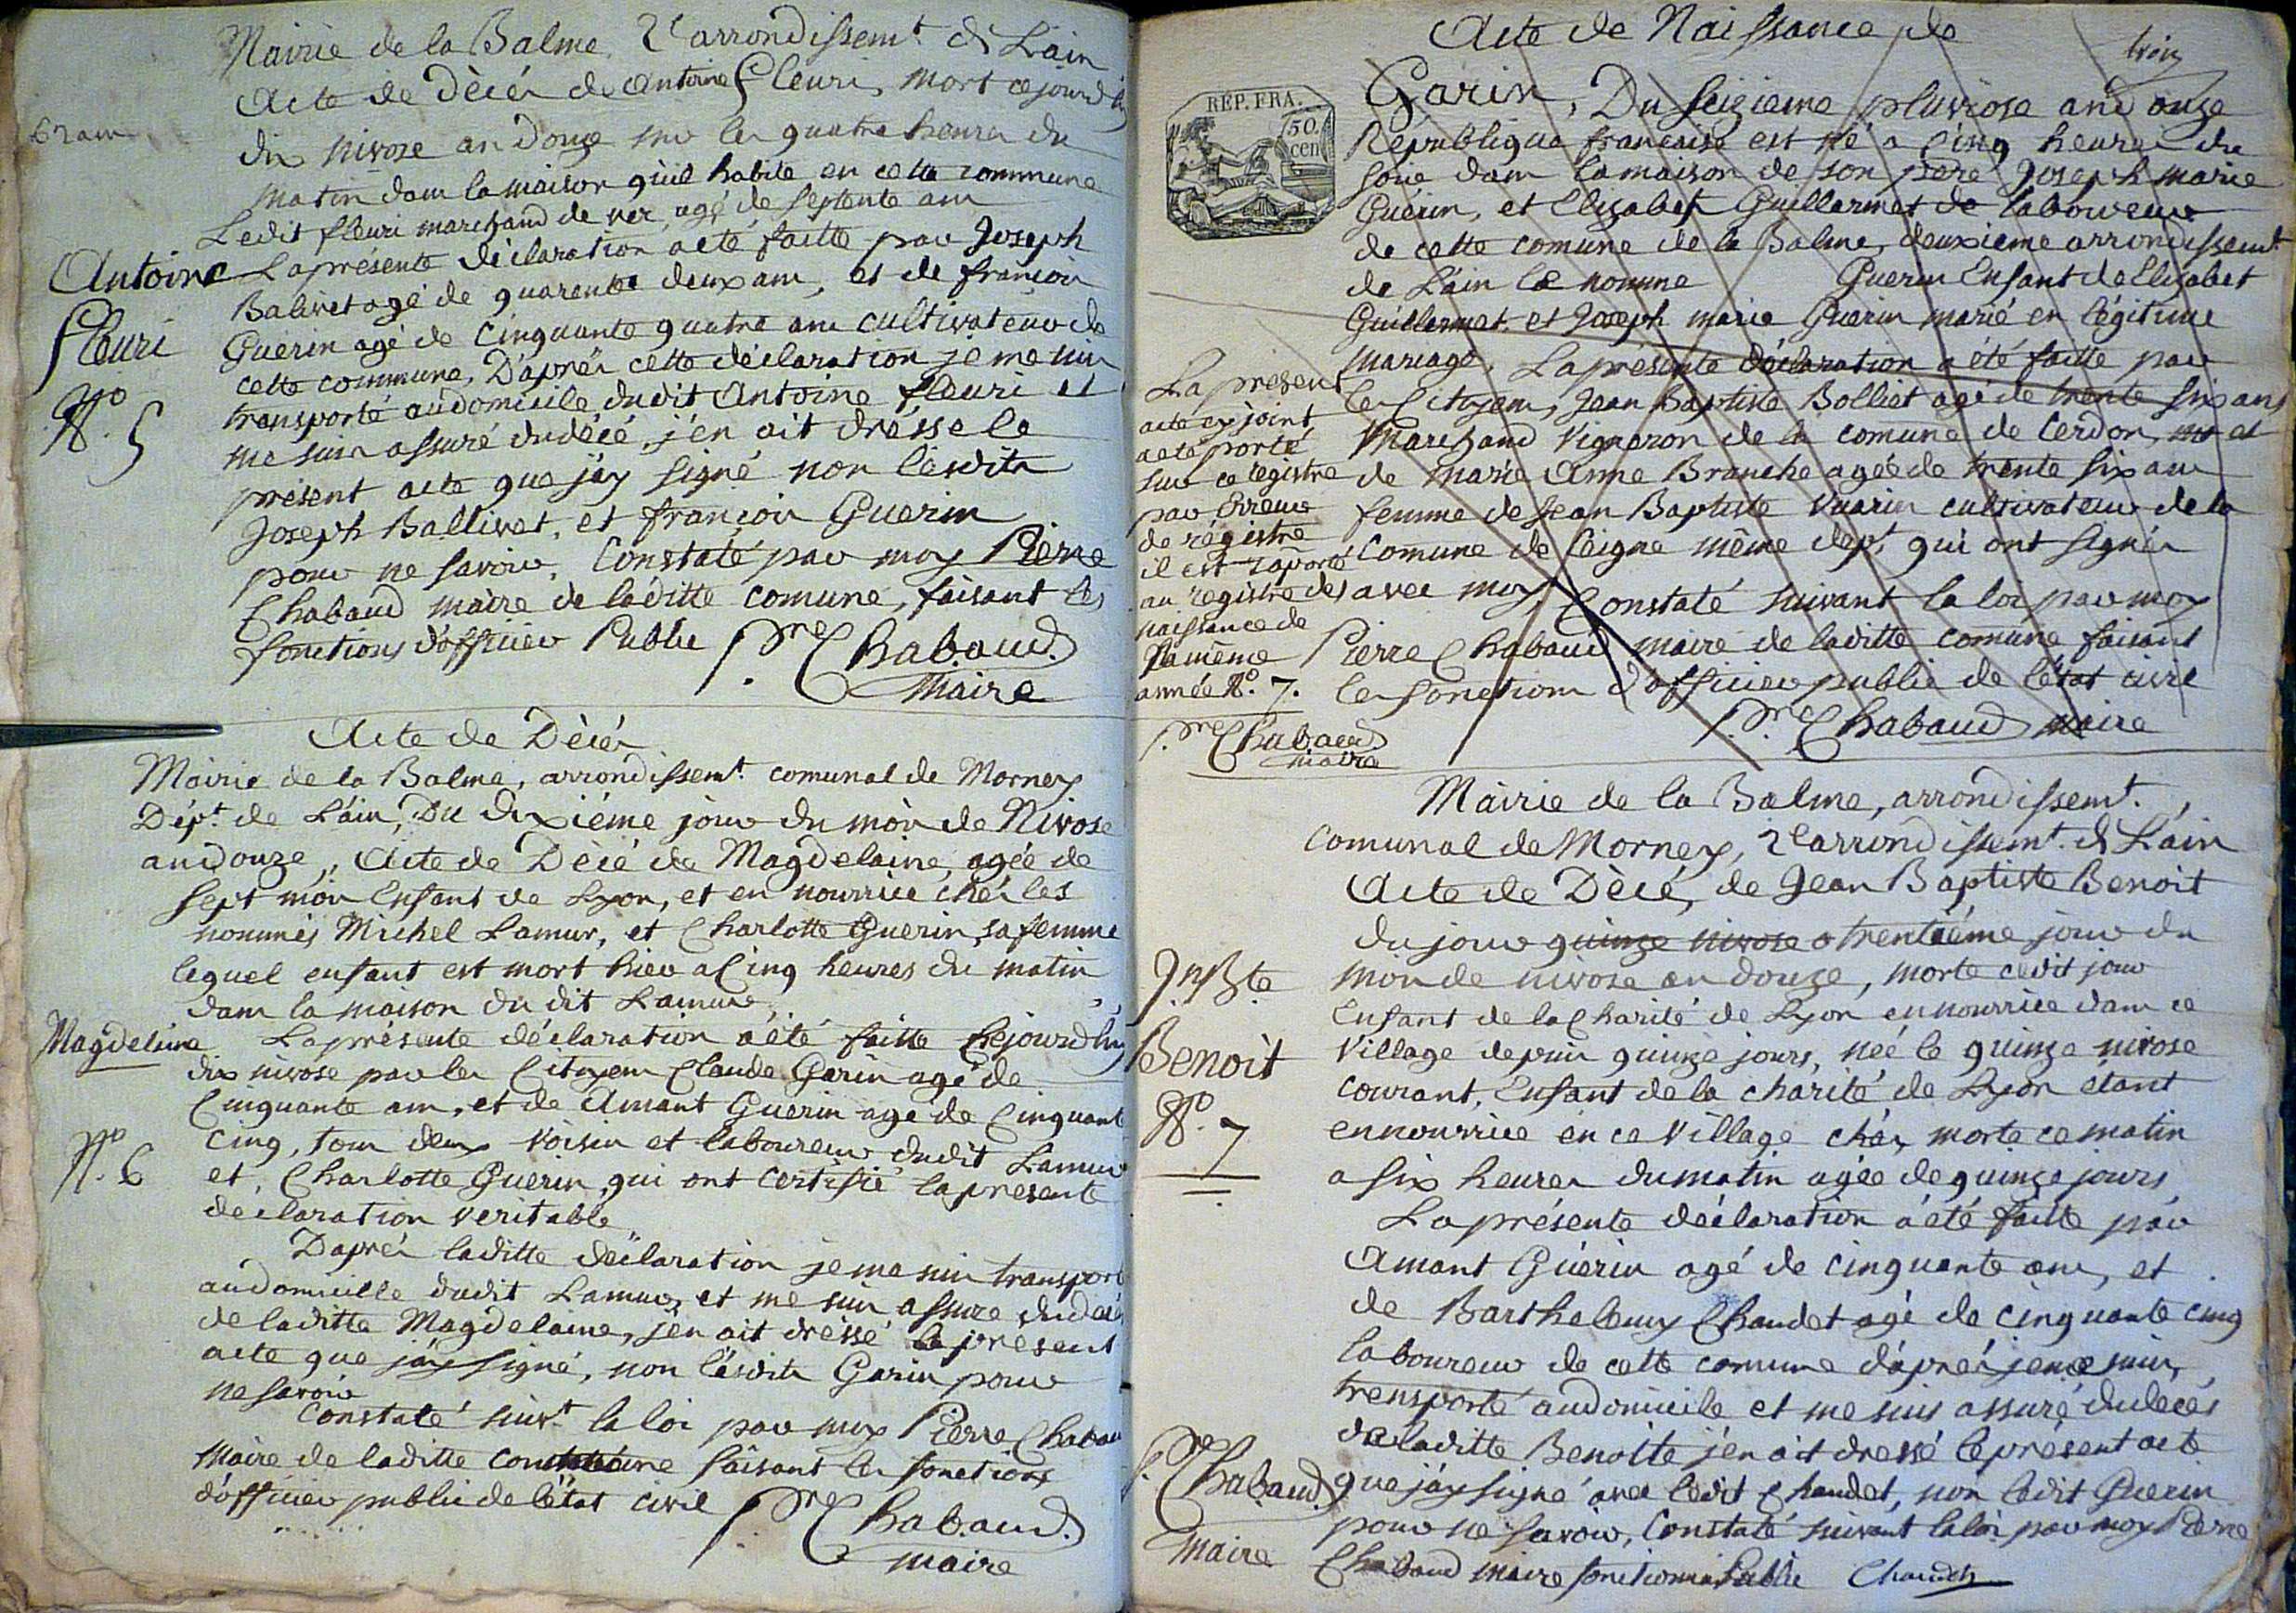 Mairie de la Balme 2e arrondissemt. de L'ain
Acte de Décés de Antoine fleuri, mort cejourdhuy
dix nivose an douze sur les quatre heures du
matin dans la maison qu'il habite en cette commune
Ledit fleuri marchand de ver, agé de septente ans
Antoine
fleuri
N°. 5
La présente déclaration a eté faitte par Joseph
Balivet agé de quarente deux ans, et de françois
Guerin agé de Cinquante quatre ans cultivateurs de
cette commune, D'aprés cette déclaration je me suis
transporté audomicile dudit Antoine fleuri et
me suis assuré dudécé, j'en ait dréssé le
présent acte que j'ay signé non lésdits
Joseph Ballivet, et françois Guerin
pour ne savoir, Constaté par moy Pierre
Chabaud maire de laditte comune, faisant les
fonctions d'officier Public Pre Chabaud
Maire
Acte de Décés
Mairie de la Balme, arrondissemt. comunal de Mornay
Dépt. de L'ain, Du dixiéme jour du mois de Nivose
an douze, Acte de Décé de Magdelaine, agée de
sept mois Enfant de Lyon, et en nourrice chés les
nommés Michel Lamur, et Charlotte Guerin, sa femme
lequel enfant est mort hier a Cinq heures du matin
dans la maison du dit Lamure,
Magdelaine
N°. 6
La présente déclaration a été faitte Cejourdhuy
dix nivose par les Citoyens Claude Garin agé de
Cinquante ans, et de Amant Guerin agé de Cinquante
Cinq, tous deux voisin et laboureur dudit Lamur
et, Charlotte Guerin, qui ont certifié la présente
declaration veritable,
D'aprés laditte déclaration je me suis transporté
audomicille dudit Lamur, et me suis assuré dudécés
de laditte Magdelaine, j'en ait dréssé le présent
acte que j'ay signé, non lésdits Garin pour
ne savoir
Constaté suivt. la loi par moy Pierre Chabaud
Maire de laditte comune faisant les fonctions
d'officier public de l'état civil Pre Chabaud.
maire
Acte de Naissance de
REP. FRA.
50.
cen
Garin, Du seizieme pluviose and onze
République francaise est né a Cinq heures du
soire dans la maison de son père Joseph marie
Guérin, et Elizabet Guillermet de laboureur
de cette comune de la Balme, deuxieme arrondissemt
de L'ain Le nomme Guerin Enfant de Elizabet
Guillermet et Joseph marie Guerin marié en légitime
mariage, La présente déclaration a été faitte par
les Citoyens, Jean Baptiste Bolliet agé de trente six ans
Marchand Vigneron de la comune de Cerdon, et
de marie Anne Branche agée de trente six ans
femme de Jean Baptiste Vuarin cultivateur de la
Comune de Leigne même dept. qui ont signés
avec moy, Constaté suivant la loi par moy
Pierre Chabaud maire de laditte comune faisant
les fonctions d'officier public de l'état civil
Pre Chabaud maire
La présent
acte cy joint,
a eté porté
sur ce régistre
par Erreur
de régistre
il est raporté
au régistre des
naissance de
la même
année N°. 7.
Pre Chabaud
maire
Mairie de la Balme, arrondissemt.
Comunal de Mornay, 2e arrondissemt. de L'ain
Acte de Décé, de Jean Baptiste Benoit
du jour quinze nivose trentiéme jour du
mois de nivose an douze, morte cedit jour
Enfant de la Charité de Lyon en nourrice dans ce
Village depuis quinze jours, née le quinze nivose
courant, Enfant de la charité de Lyon étant
en nourrice en ce Village chés, morte ce matin
a six heures du matin agée de quinze jours
Jn. Bte
Benoit
N°. 7
La présente déclaration a été faitte par
Amant Guérin agé de cinquante ans, et
de Barthelemy Chaudet agé de cinquante cinq
laboureur de cette comune d'aprés je me suis
transporté audomicile et me suis assuré du decés
de laditte Benoitte j'en ait dressé le présent acte
que j'ay signé avec ledit Chaudet, non ledit Guerin
pour ne savoir, Constaté suivant la loi par moy Pierre
Chabaud maire fonctionaire Public Chaudet
Pre Chabaud.
Maire